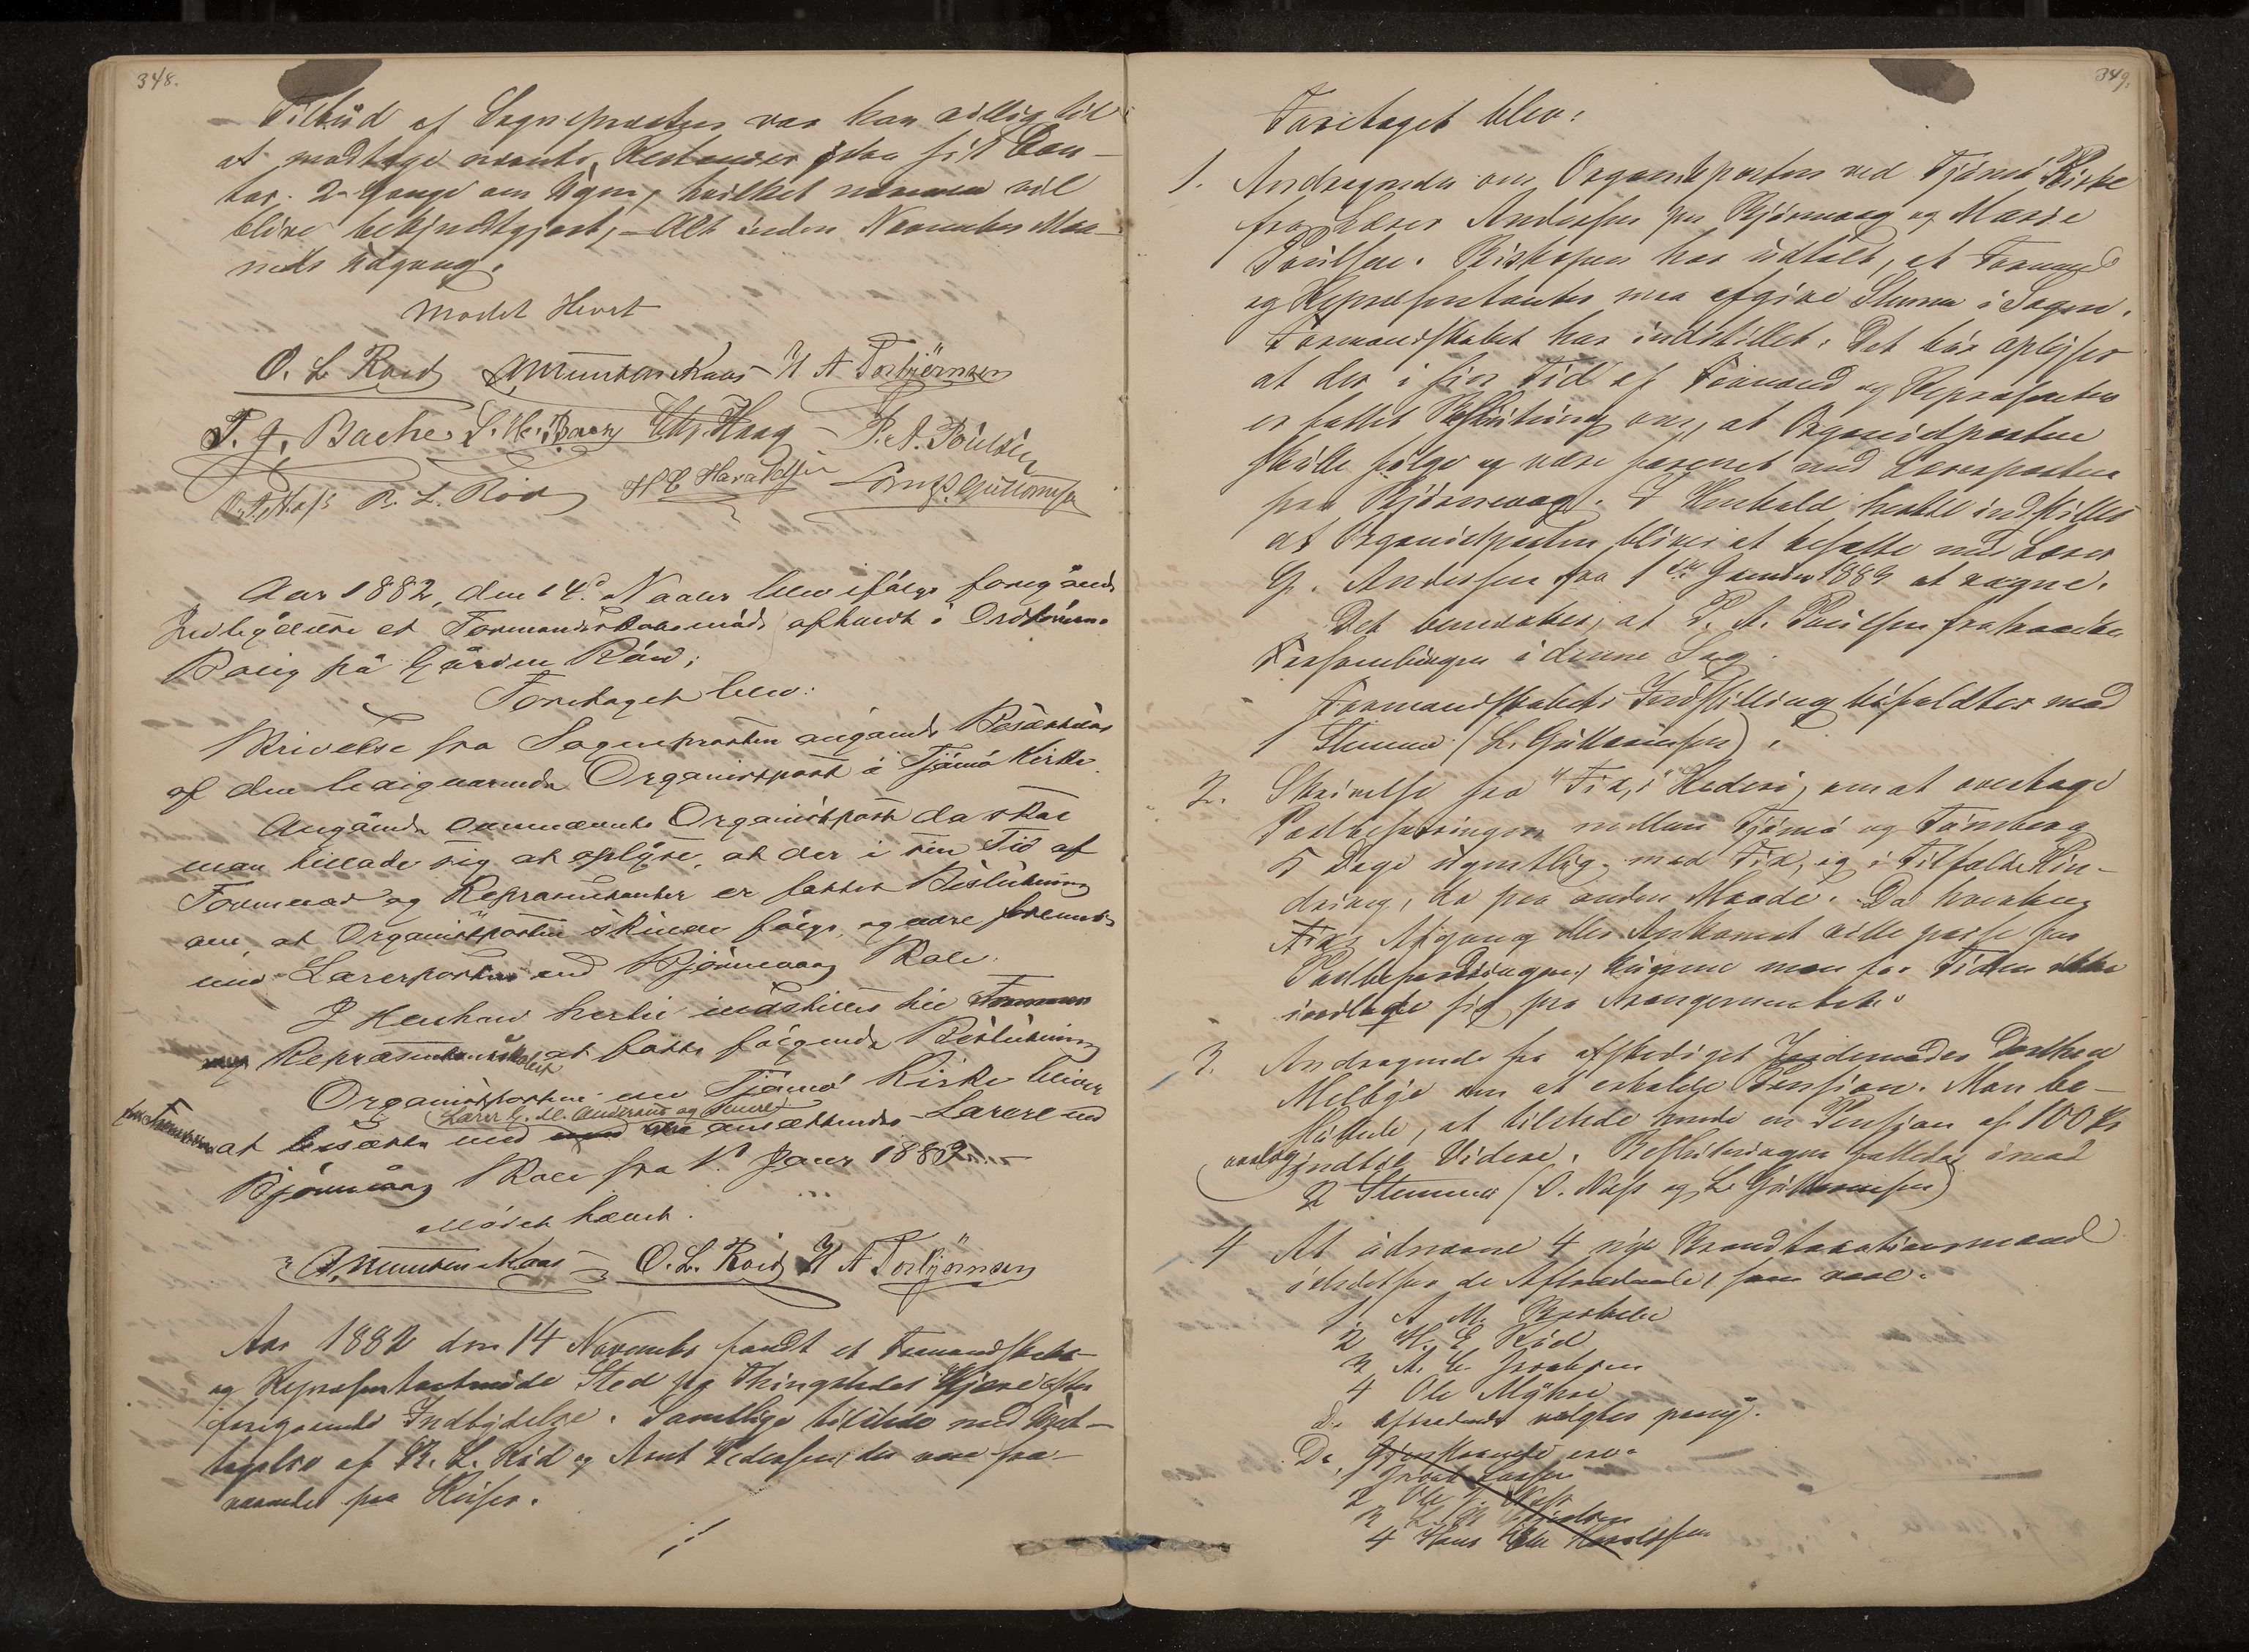 348.
Tilbud af Sognepresten var han villig til
at modtage nævnte Restancer paa sit Con-
tor 2 Gange om Ugen, hvilket nærmere vil
blive bekjendtgjort, - Alt inden November Maa-
neds Udgang.
Mødet Hevet
O. L. Røed A Muntan Kaas H A Torbjörnsen
T. J. Bache L. M. Chr. Haag P. A. Poulsen
O. Næss R. L. Röd H E Haraldsen Guttormsen
Aar 1882, den 14d Novbr blev ifølge foregående
Indbydelse et Formandskabsmöde afholdt i Ordførerens
Bolig på Gården Röd;
Foretaget blev:
Skrivelse fra Sognepresten angående Besættelse
af den ledigværende Organistpost i Tjömö Kirke.
Angående ovennævnte Organistpost da skal
man tillade sig at oplyse, at der i sin Tid af
Formænd og Repræsentanter er fattet Beslutning
om, at Organistposten skulde følge, og være forenet
med Lærerposten ved Bjönnevaag Skole.
I Henhold hertil indstilles til
Repræsentantskabet at fatte følgende Beslutning
Organistposten ved Tjömö Kirke bliver
Lærer G. M. Anderssen
at besætte med ansættende Lærere ved
Bjönnevaag Skole fra 1ste Janr 1883
Mödet hævet.
A. Muntan Kaas O. L. Röed H A Torbjörnsen
Aar 1882 den 14 November fandt et Formandskabs-
og Repræsentantmöde Sted paa Thingstedet Kjære efter
foregaaende Indbydelse. Samtlige tilstede med Und-
tagelse af R. L. Röd og Arnt Pedersen, der var fra-
værende paa Reiser.
349.
Foretaget blev:
1. Andragender om Organistposten ved Tjömö Kirke
fra Lærer Andersen paa Bjönnevaag og Marie
Poulsen. Biskopen har udtalt, at Formænd
og Repræsentanter maa afgive Stemme i Sagen.
Formandskabet har indstillet: Det bør oplyses
at der i sin Tid af Formænd og Repræsentanter
er fattet Beslutning om, at Organistposten
skulde følge og være forenet med Lærerposten
paa Bjönnevaag. I Henhold hertil indstilles
at Organistposten bliver at besætte med Lærer
G. Andersen fra 1ste Januar 1883 at regne.
Det bemærkes, at P. A. Poulsen fratraadte
Forsamlingen i denne Sag.
Formandskabets Indstilling bifaldtes mod
1 Stemme (L. Guttormsen).
2. Skrivelse fra "Fix" i Hedevi, om at overtage
Postbefordringen mellem Tjömö og Tönsberg
5 Dage ugentlig med Fix, og i Tilfælde Hin-
dring, da paa anden Maade. Da hverken
Fixs Afgang eller Ankomst vilde passe for
Postbefordringen, kunde man for Tiden ikke
indlade sig paa Arangementet.
3. Andragende fra afskediget Jordemoder Dorthea
Melbye om at erholde Pension. Man be-
sluttede, at tilstede hende en Pension af 100 Kr
aarlig indtil Videre. Beslutningen fattedes imod
2 Stemmer (O. Næss og L. Guttormsen)
4 At udnævne 4 nye Brandtaxationsmænd
istedetfor de Aftrædende, som vare:
1. A. M.
2 H. E. Röd
3 A. C. Jacobsen
4 Ole Myhre
De aftrædende valgtes paany.
De Gjenstaaende ere:
1
2 Ole Næss
3
4 Hans Haraldsen